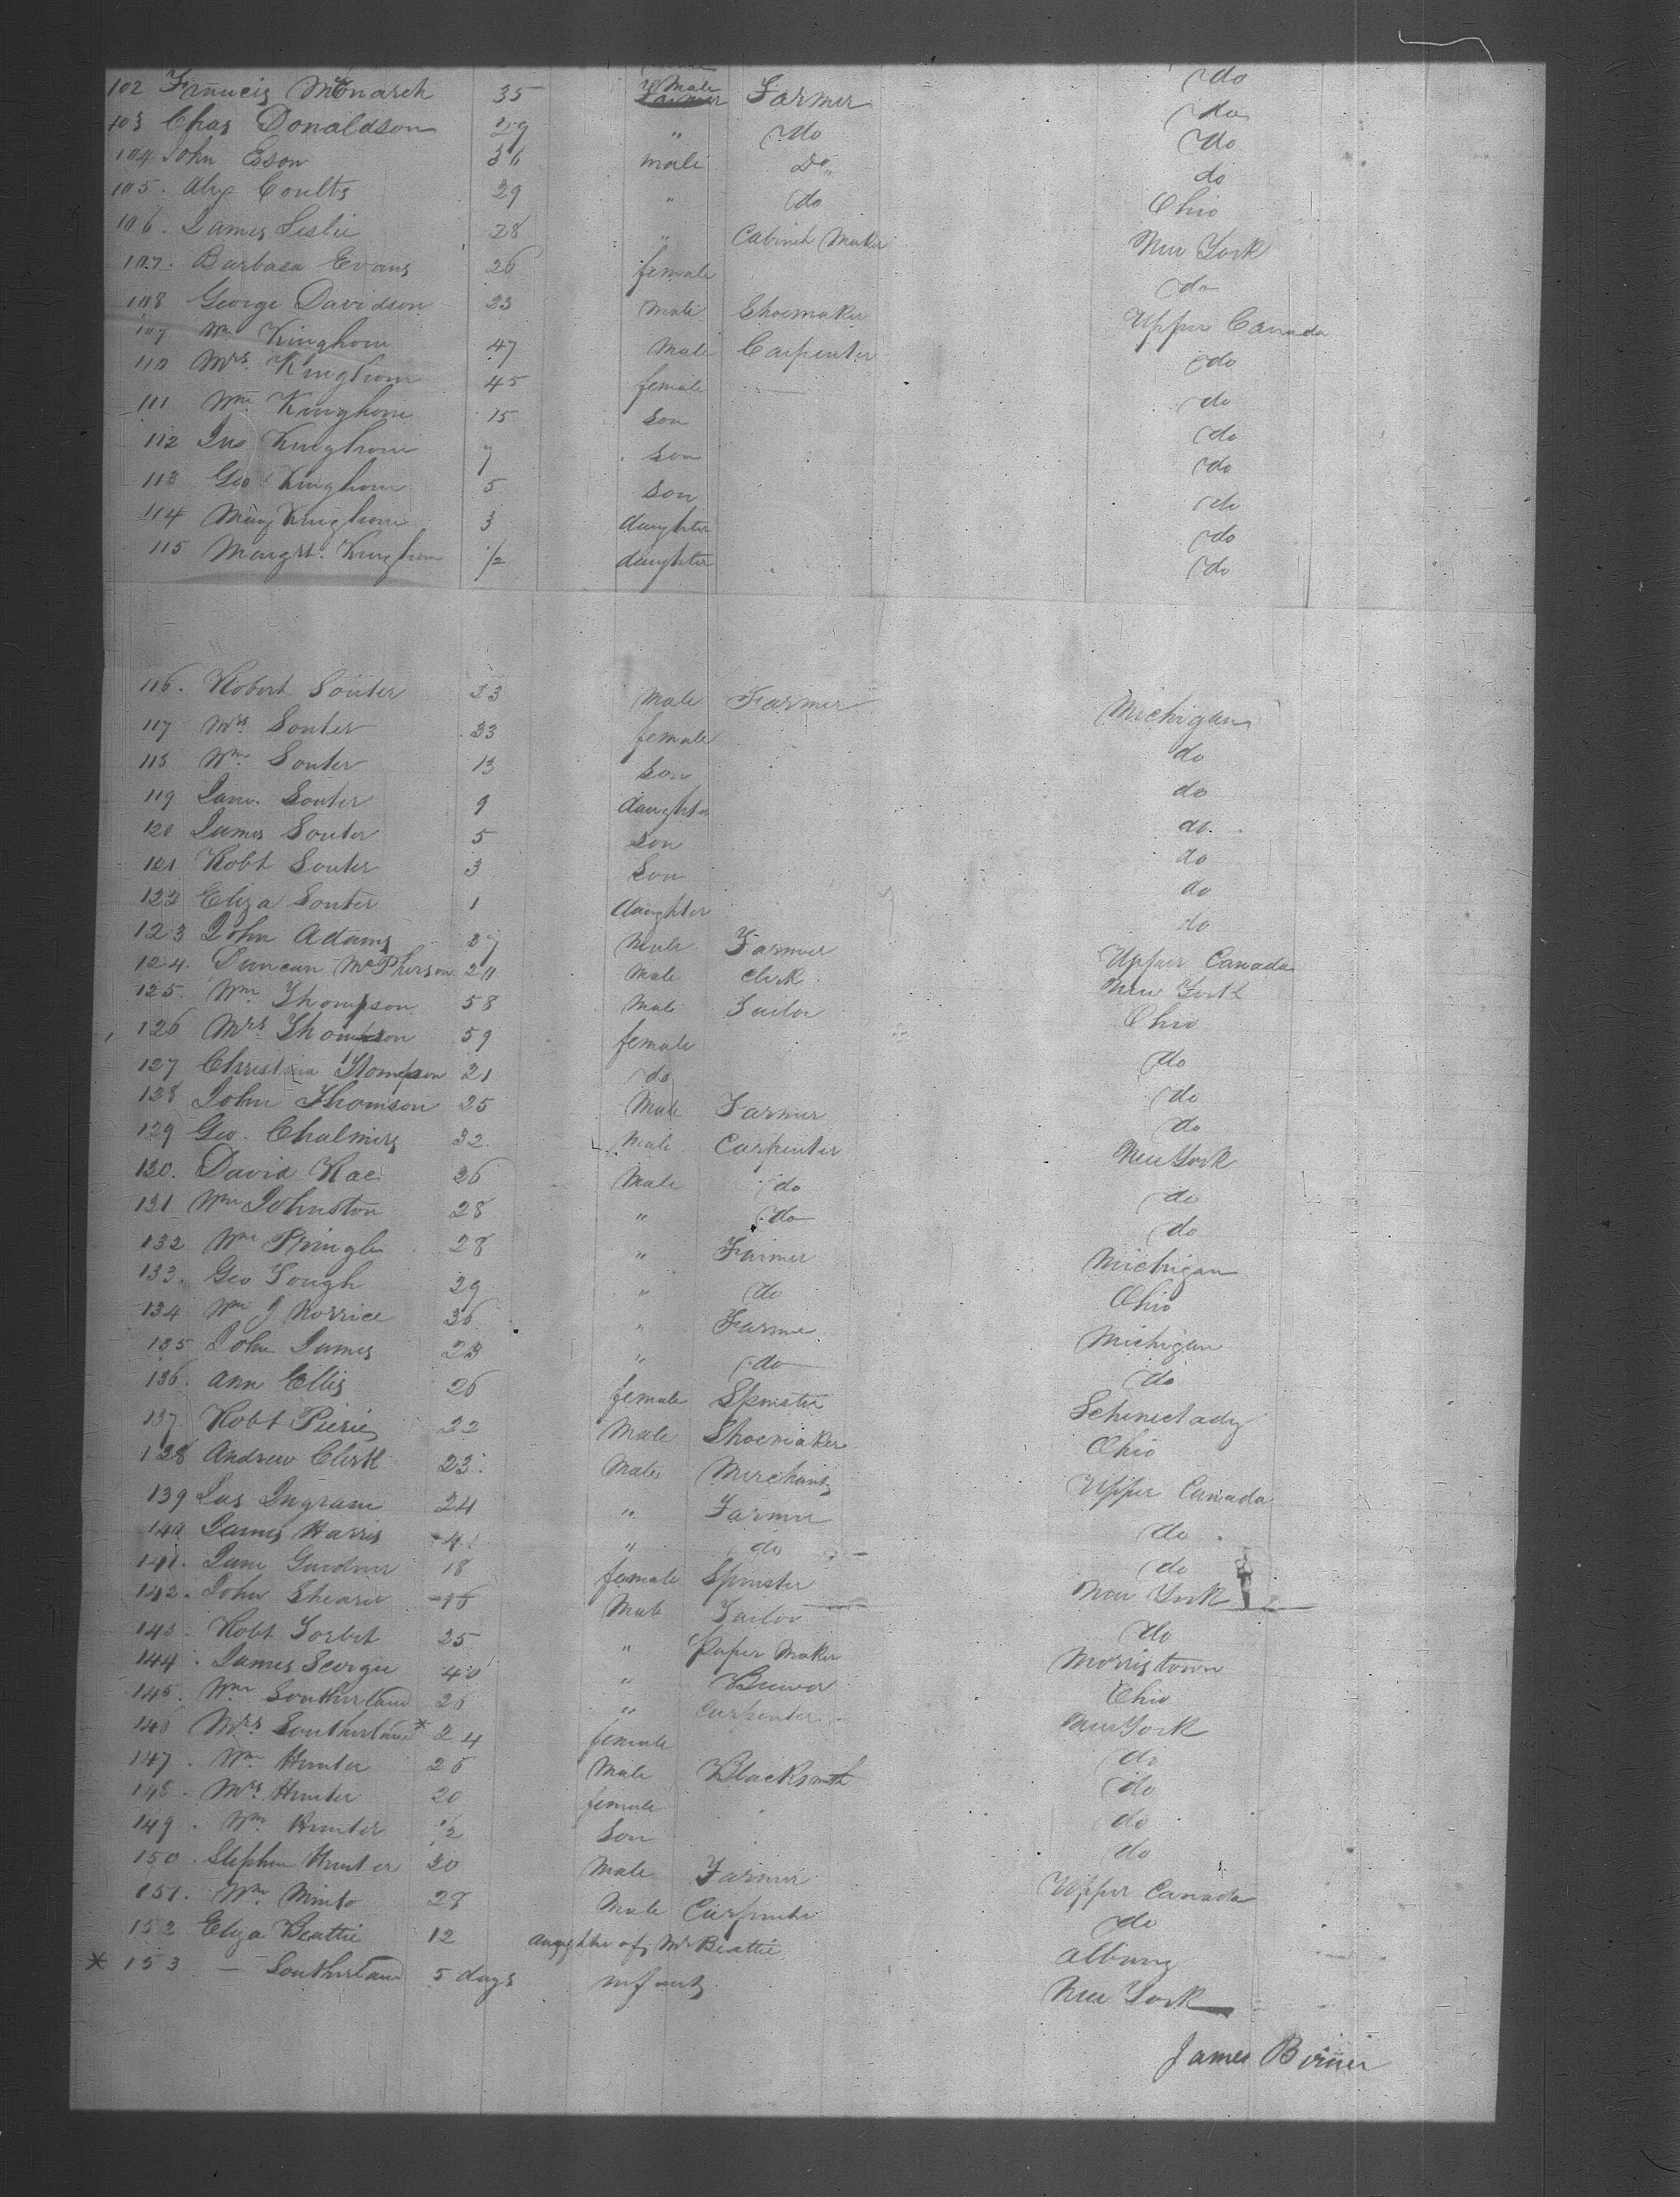 do
102 Francis McConarch 35 Male Farmer do
103 Chas Donaldson 29 " do do
104 John Esson 36 male Do" do
105. Alex Coutts 29 " do Ohio
106. James Leslie 28 " Cabinet Maker New York
107. Barbara Evans 26 female do
108 George Davidson 23 Male Shoemaker Upper Canada
109 Wm Kinghorn 47 Male Carpenter do
110 Mrs. Kinghorn 45 female do
111 Wm Kinghorn 15 son do
112 Jno Kinghorn 7 son do
113 Geo Kinghorn 5 son do
114 Mary Kinghorn 3 daughter do
115 Margrt. Kinghorn 1/2 daughter do
116. Robert Souter 33 Male Farmer Michigan
117 Mrs Souter 33 female do
118 Wm. Souter 13 son do
119 Jane Souter 9 daughter do
120 James Souter 5 son do
121 Robt Souter 3 Son do
122 Eliza Souter 1 daughter do
123 John Adams 37 Male Farmer Upper Canada
124. Duncan McPherson Male Clerk New York
125. Wm Thompson 58 Male Tailor Ohio
126 Mrs Thomson 59 female do
127 Christina Thompson 21 do do
128 John Thomson 25 Male Farmer do
129 Geo. Chalmers 32 Male Carpenter New York
130. David Rae 26 Male do do
131 Wm Johnston 28 " do do
132 Wm Pringle 28 " Farmer Michigan
133. Geo Tough 29 " do Ohio
134 Wm J Norrice 36 " Farme Michigan
135 John James 23 " do do
136. Ann Ellis 26 female Spinster Schenectady
137 Robt Pierie 22 Male Shoemaker Ohio
138 Andrew Clerk 23. Male Merchant Upper Canada
139 Jas Ingram 24 " Farmer do
140 James Harris 41 " do do
141. Jane Gardner 18 female Spinster New York
142. John Shearer 16 Male Tailor do
143. Robt Torbet 25 " Paper Maker Morristown
144. James Scorgie 40 " Brewer Ohio
145. Wm Southerland 26 " Carpenter New York
146 Mrs Southerland * 24 female do
147. Wm Hunter 26 Male Blacksmith do
148. Mrs. Hunter 20 female do
149. Wm Hunter 1/2 Son do
150. Stephen Hunter 20 Male Farmer Upper Canada
151. Wm Minto 28 Male Carpenter do
152 Eliza Beattie 12 daughter of Mr Beattie Albany
* 153 — Southerland 5 days infant New York
James Birnie